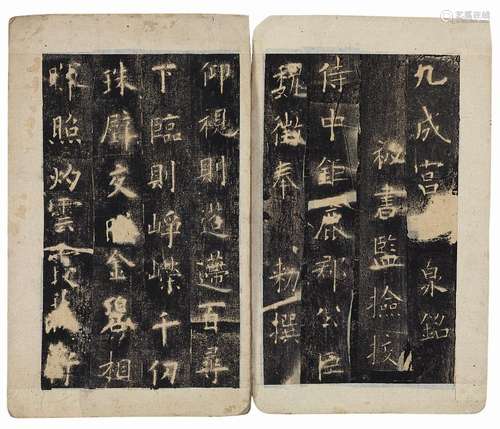 九成宮 泉銘
秘書監撿挍
侍中鉅鹿郡公臣
魏徵奉 勑撰
仰視則迢遰百尋
下臨則崢嶸千仞
珠壁交暎金碧相
暉照灼雲霞